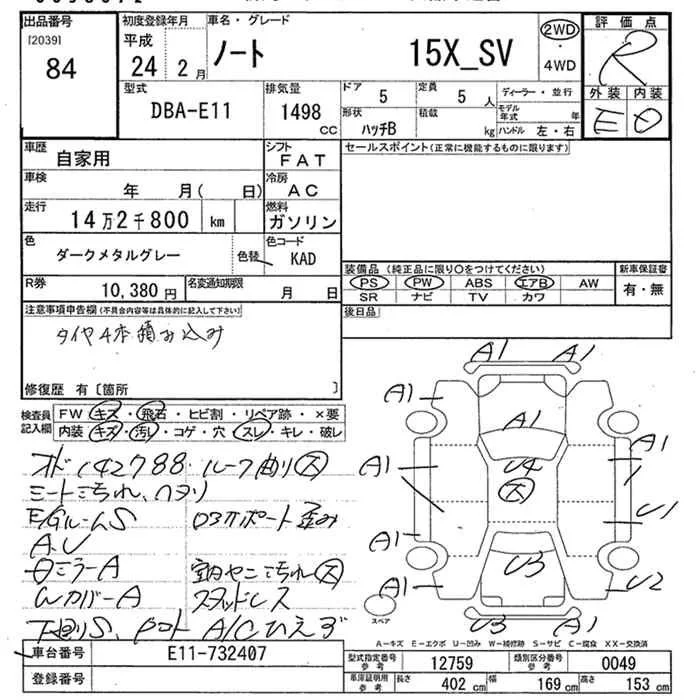 出品番号 初度登録年月 車名・グレード 評価点
[2039] 84
平成 24 2月 ノート 15X_SV 2WD・4WD R
型式 DBA-E11 排気量 1498 cc
ドア 5 定員 5人 ディーラー・並行
形状 ハッチB 積載 kg モデル年式 年 ハンドル 左・右
外装 内装
E D
車歴 自家用 シフト FAT
セールスポイント(正常に機能するものに限ります)
車検 年 月( 日) 冷房 AC
走行 14万2千800 km 燃料 ガソリン
色 ダークメタルグレー 色替 色コード KAD
装備品(純正品に限り○をつけてください) 新車保証書
PS PW ABS エアB AW 有・無
SR ナビ TV カワ
R券 10,380円 名変通知期限 月 日
後日品
注意事項申告欄(不具合内容等は具体的に記入して下さい)
タイヤ4本積み込み
修復歴 有〔箇所 〕
検査員記入欄
FW キズ・飛石・ヒビ割・リペア跡・×要
内装・キズ・汚レ・コゲ・穴・スレ・キレ・破レ
オド142788 ルーフ曲り大
シート汚れ、ヘタリ
E/GルームS
A.U
ミラーA 室内ヤニ汚れ大
WカバーA スタッドレス
下廻りS、 A/Cひえず
A1 A1
A1
A1
A1 A1
U4
大
U1
A1
A1 U3 U2
U3 A1
スペア
A−キズ E−エクボ U−凹み W−補修跡 S−サビ C−腐食 XX−交換済
車台番号 E11-732407
登録番号
型式指定番号 参考 12759 類別区分番号 参考 0049
車庫証明用 参考 長さ 402 cm 幅 169 cm 高さ 153 cm